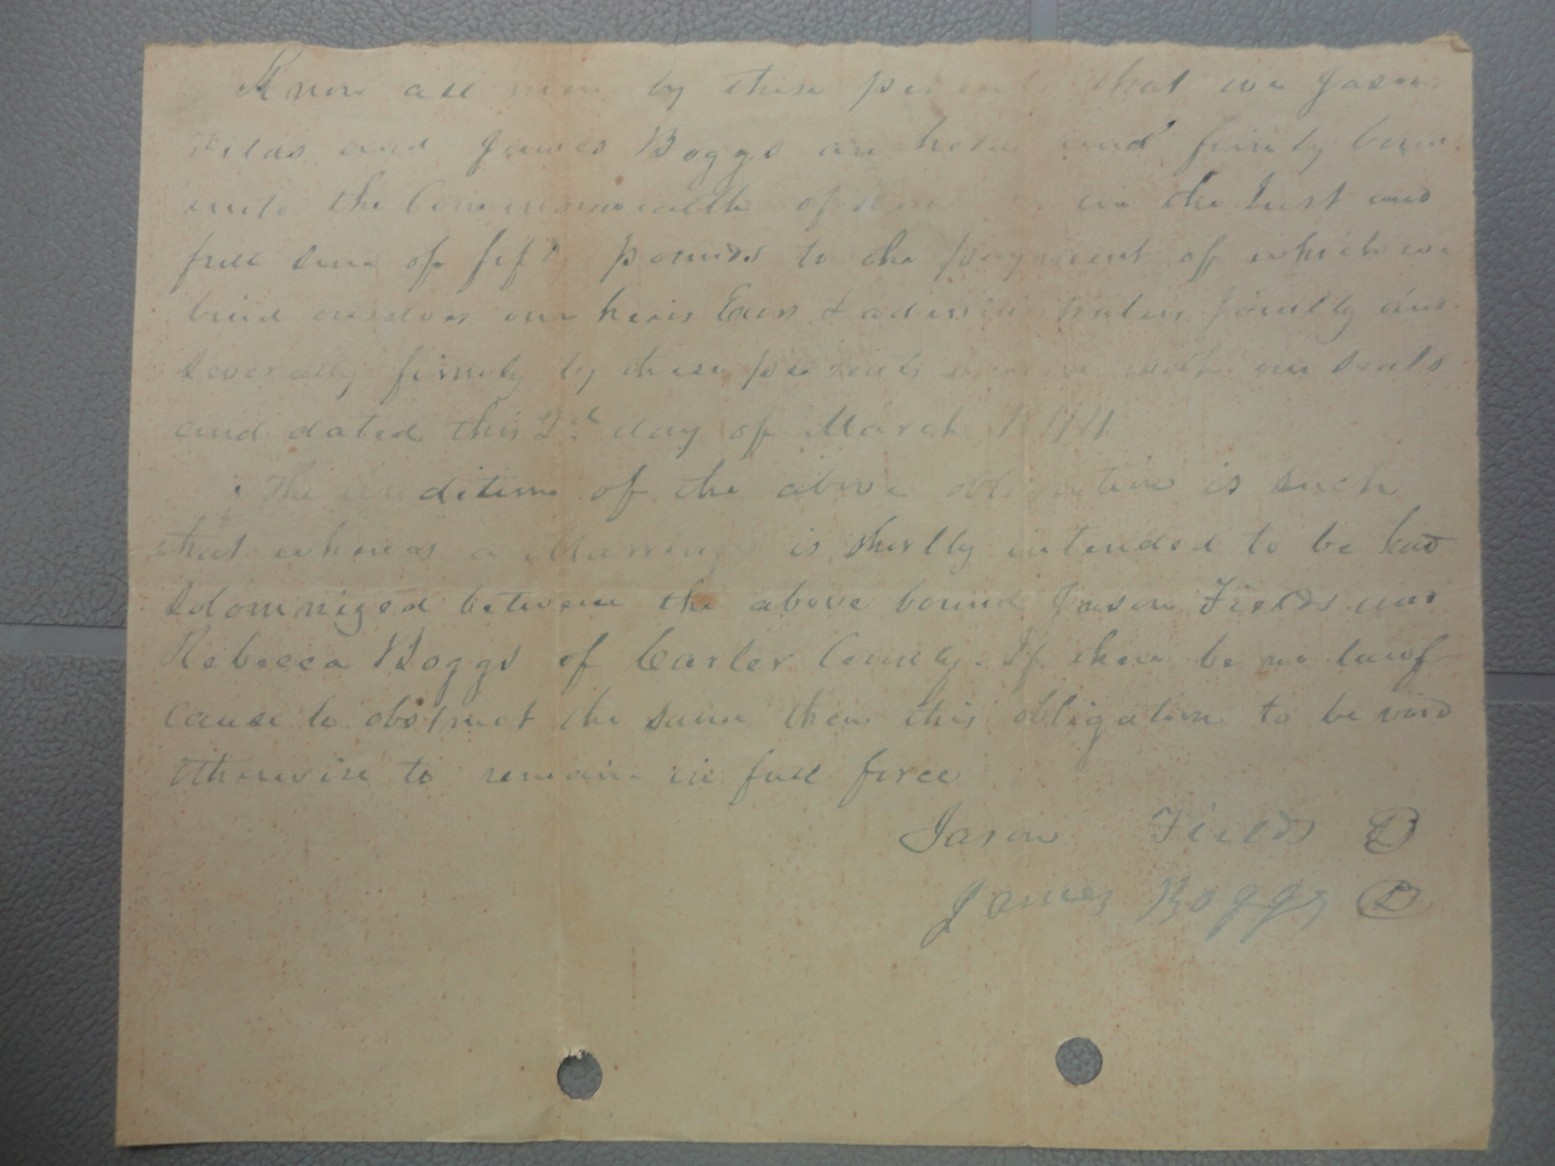 Know all men by these presents that we Jason
Fields and James Boggs are held and firmly boun
unto the Commonwealth of in the Just and
full sum of fifty pounds to the payment of which we
bind ourselves our heirs Exrs & administrators jointly and
Severally firmly by these presents with our seals
and dated this 2d day of March
The condition of the above obligation is such
that whereas a Marriage is shortly intended to be had
Solomnized between the above bound Jason Fields and
Rebecca Boggs of Carter County. If there be no lawf
cause to obstruct the same then this obligation to be void
otherwise to remain in full force
Jason Fields
James Boggs